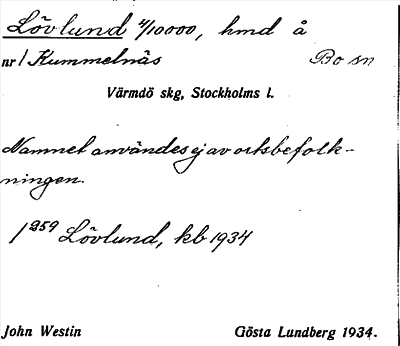 Lövlund 4/10000, hmd å
nr 1 Kummelnäs Bo sn
Värmdö skg, Stockholms l.
Namnet användes ej av ortsbefolk-
ningen.
1 959 Lövlund, kb 1934
John Westin Gösta Lundberg 1934.